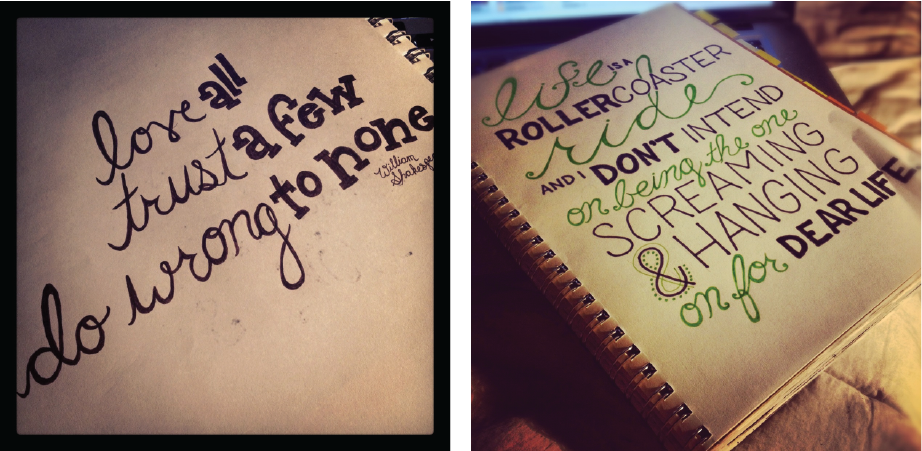 love all
trust a few
do wrong to none
William
life IS A
ROLLERCOASTER
ride
AND I DON'T INTEND
on being the one
SCREAMING
& HANGING
on for DEAR LIFE